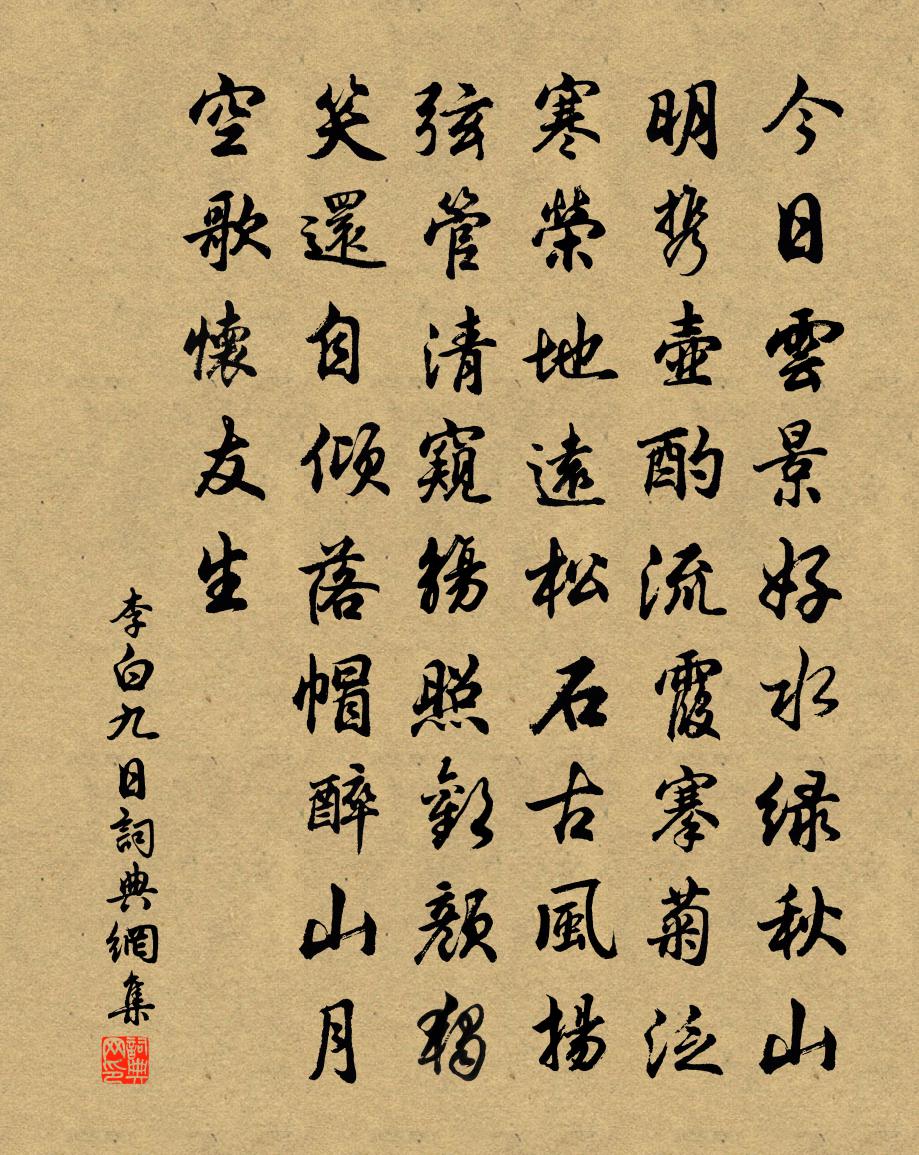 今日雲景好水緑秋山
明携壺酌流霞搴菊泛
寒榮地遠松石古風揚
弦管清窺觴照歡顔獨
笑還自傾落帽醉山月
空歌懷友生
李白九日詞典網集
詞典网印